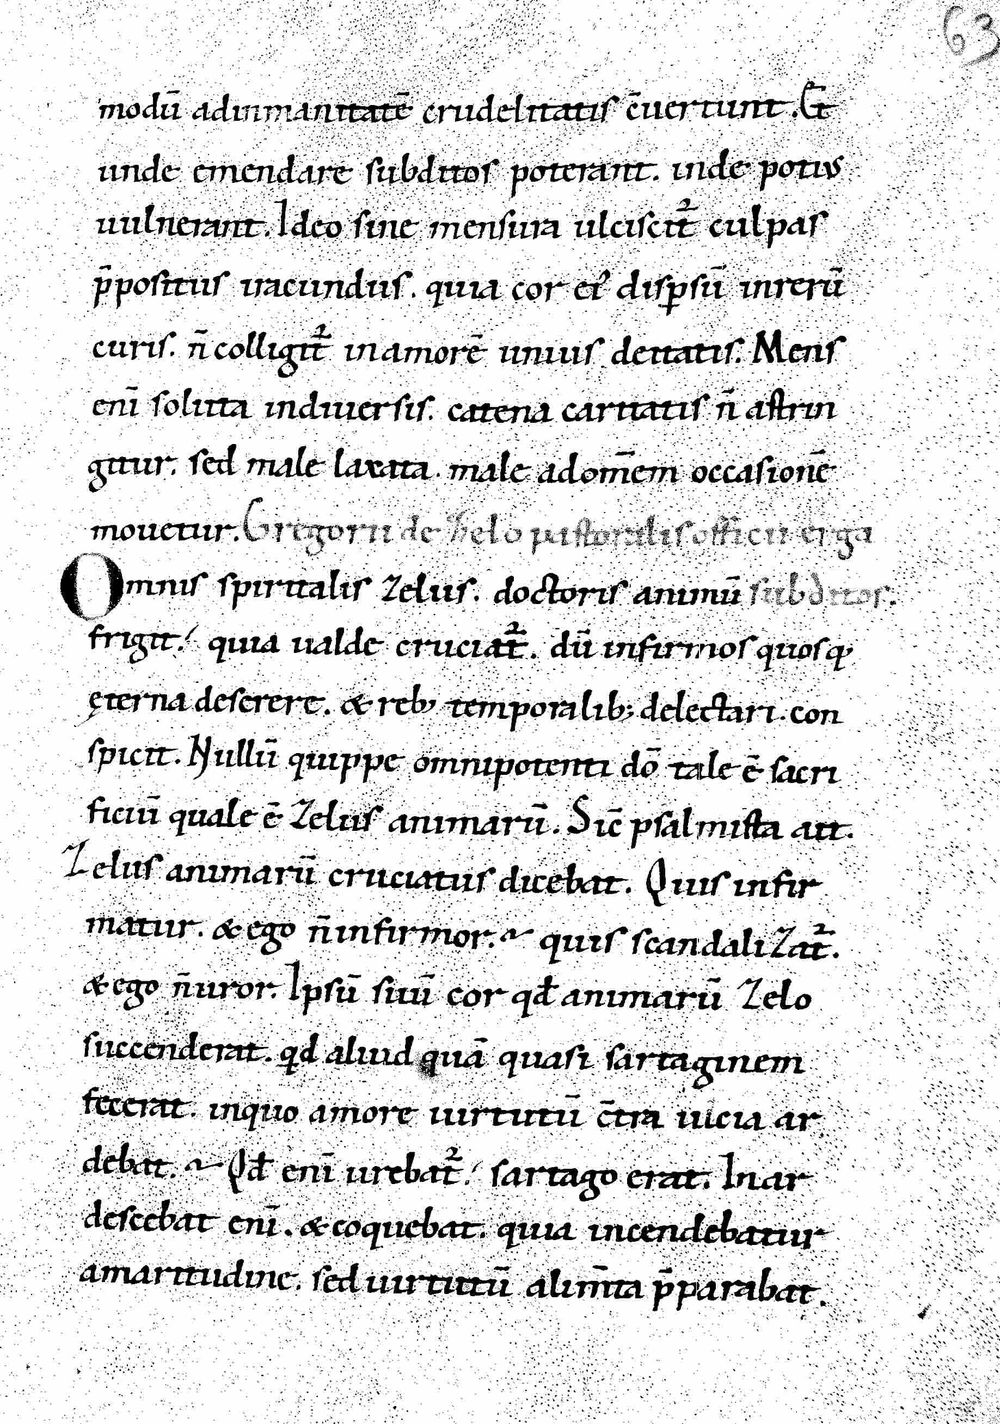 63
modū adinmanitatē crudelitatis c̄uertunt. Et
unde emendare subditos poterant. inde potius
uulnerant. Ideo sine mensura ulciscit᷑ culpas
p̄positus iracundus. quia cor ei᷒ disꝑsū inrerū
curis. n̄ colligit᷑ inamorē unius deitatis. Mens
enī soluta indiuersis. catena caritatis n̄ astrin
gitur. sed male laxata. male adom̄em occasionē
mouetur. Gregorii de zelo pastoralis officii erga
Omnis spiritalis zelus. doctoris animū subditos.
frigit! quia ualde cruciat᷑. dū infirmos quosq;
ęterna deserere. & reb; temporalib; delectari. con
spicit. Nullū quippe omnipotenti dō tale ē sacri
ficiū quale ē zelus animarū. Sic̄ psalmista ait.
Zelus animarū cruciatus dicebat. Quis infir
matur. & ego n̄ infirmor. quis scandalizat᷑.
& ego n̄ uror. Ipsū suū cor qđ animarū zelo
succenderat. qd aliud quā quasi sartaginem
fecerat. inquo amore uirtutū c̄tra uicia ar
debat. Qđ enī urebat᷑! sartago erat. Inar
descebat enī. & coquebat. quia incendebatur
amaritudine. sed uirtutū alim̄ta p̄parabat.